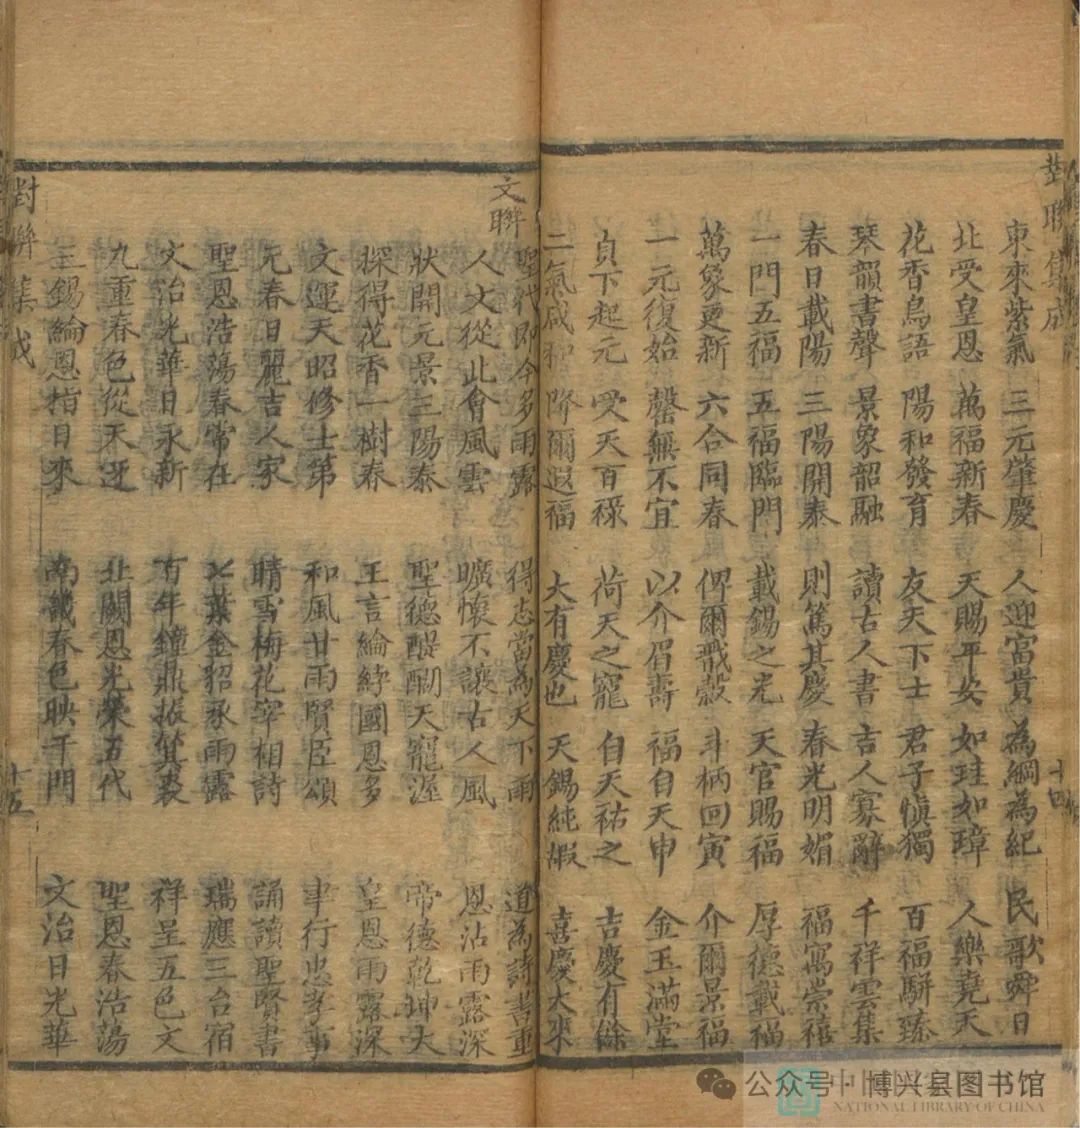 對聯集成
東來紫氣 三元肇慶 人迎富貴 為綱為紀 民歌舜日
北受皇恩 萬福新春 天賜平安 如珪如璋 人樂堯天
花香鳥語 陽和發育 友天下士 君子慎獨 百福駢臻
琴韻書聲 景象韶融 讀古人書 吉人寡辭 千祥雲集
春日載陽 三陽開泰 則篤其慶 春光明媚 福寓崇禧
一門五福 五福臨門 載錫之光 天官賜福 厚德載福
萬象更新 六合同春 俾爾戩穀 斗柄回寅 介爾景福
一元復始 罄無不宜 以介眉壽 福自天申 金玉滿堂
貞下起元 受天百祿 荷天之寵 自天祐之 吉慶有餘
二氣咸和 降爾遐福 大有慶也 天錫純嘏 喜慶大來
十四
文聯
聖代即今多雨露 得志當為天下雨 道為詩書重
人文從此會風雲 曠懷不讓古人風 恩沾雨露深
狀開元景三陽泰 聖德醍醐天寵渥 帝德乾坤大
探得花香一樹春 王言綸綍國恩多 皇恩雨露深
文運天昭修士第 和風甘雨賢臣頌 事行忠孝事
元春日麗吉人家 晴雪梅花宰相詩 誦讀聖賢書
聖恩浩蕩春常在 葉金貂承雨露 瑞應三台宿
文治光華日永新 百年鐘鼎振箕裘 祥呈五色文
九重春色從天迓 北闕恩光榮五代 聖恩春浩蕩
三錫綸恩指日來 南山春色映千門 文治日光華
對聯集成
十五
公众号·博兴县图书馆
NATIONAL LIBRARY OF CHINA